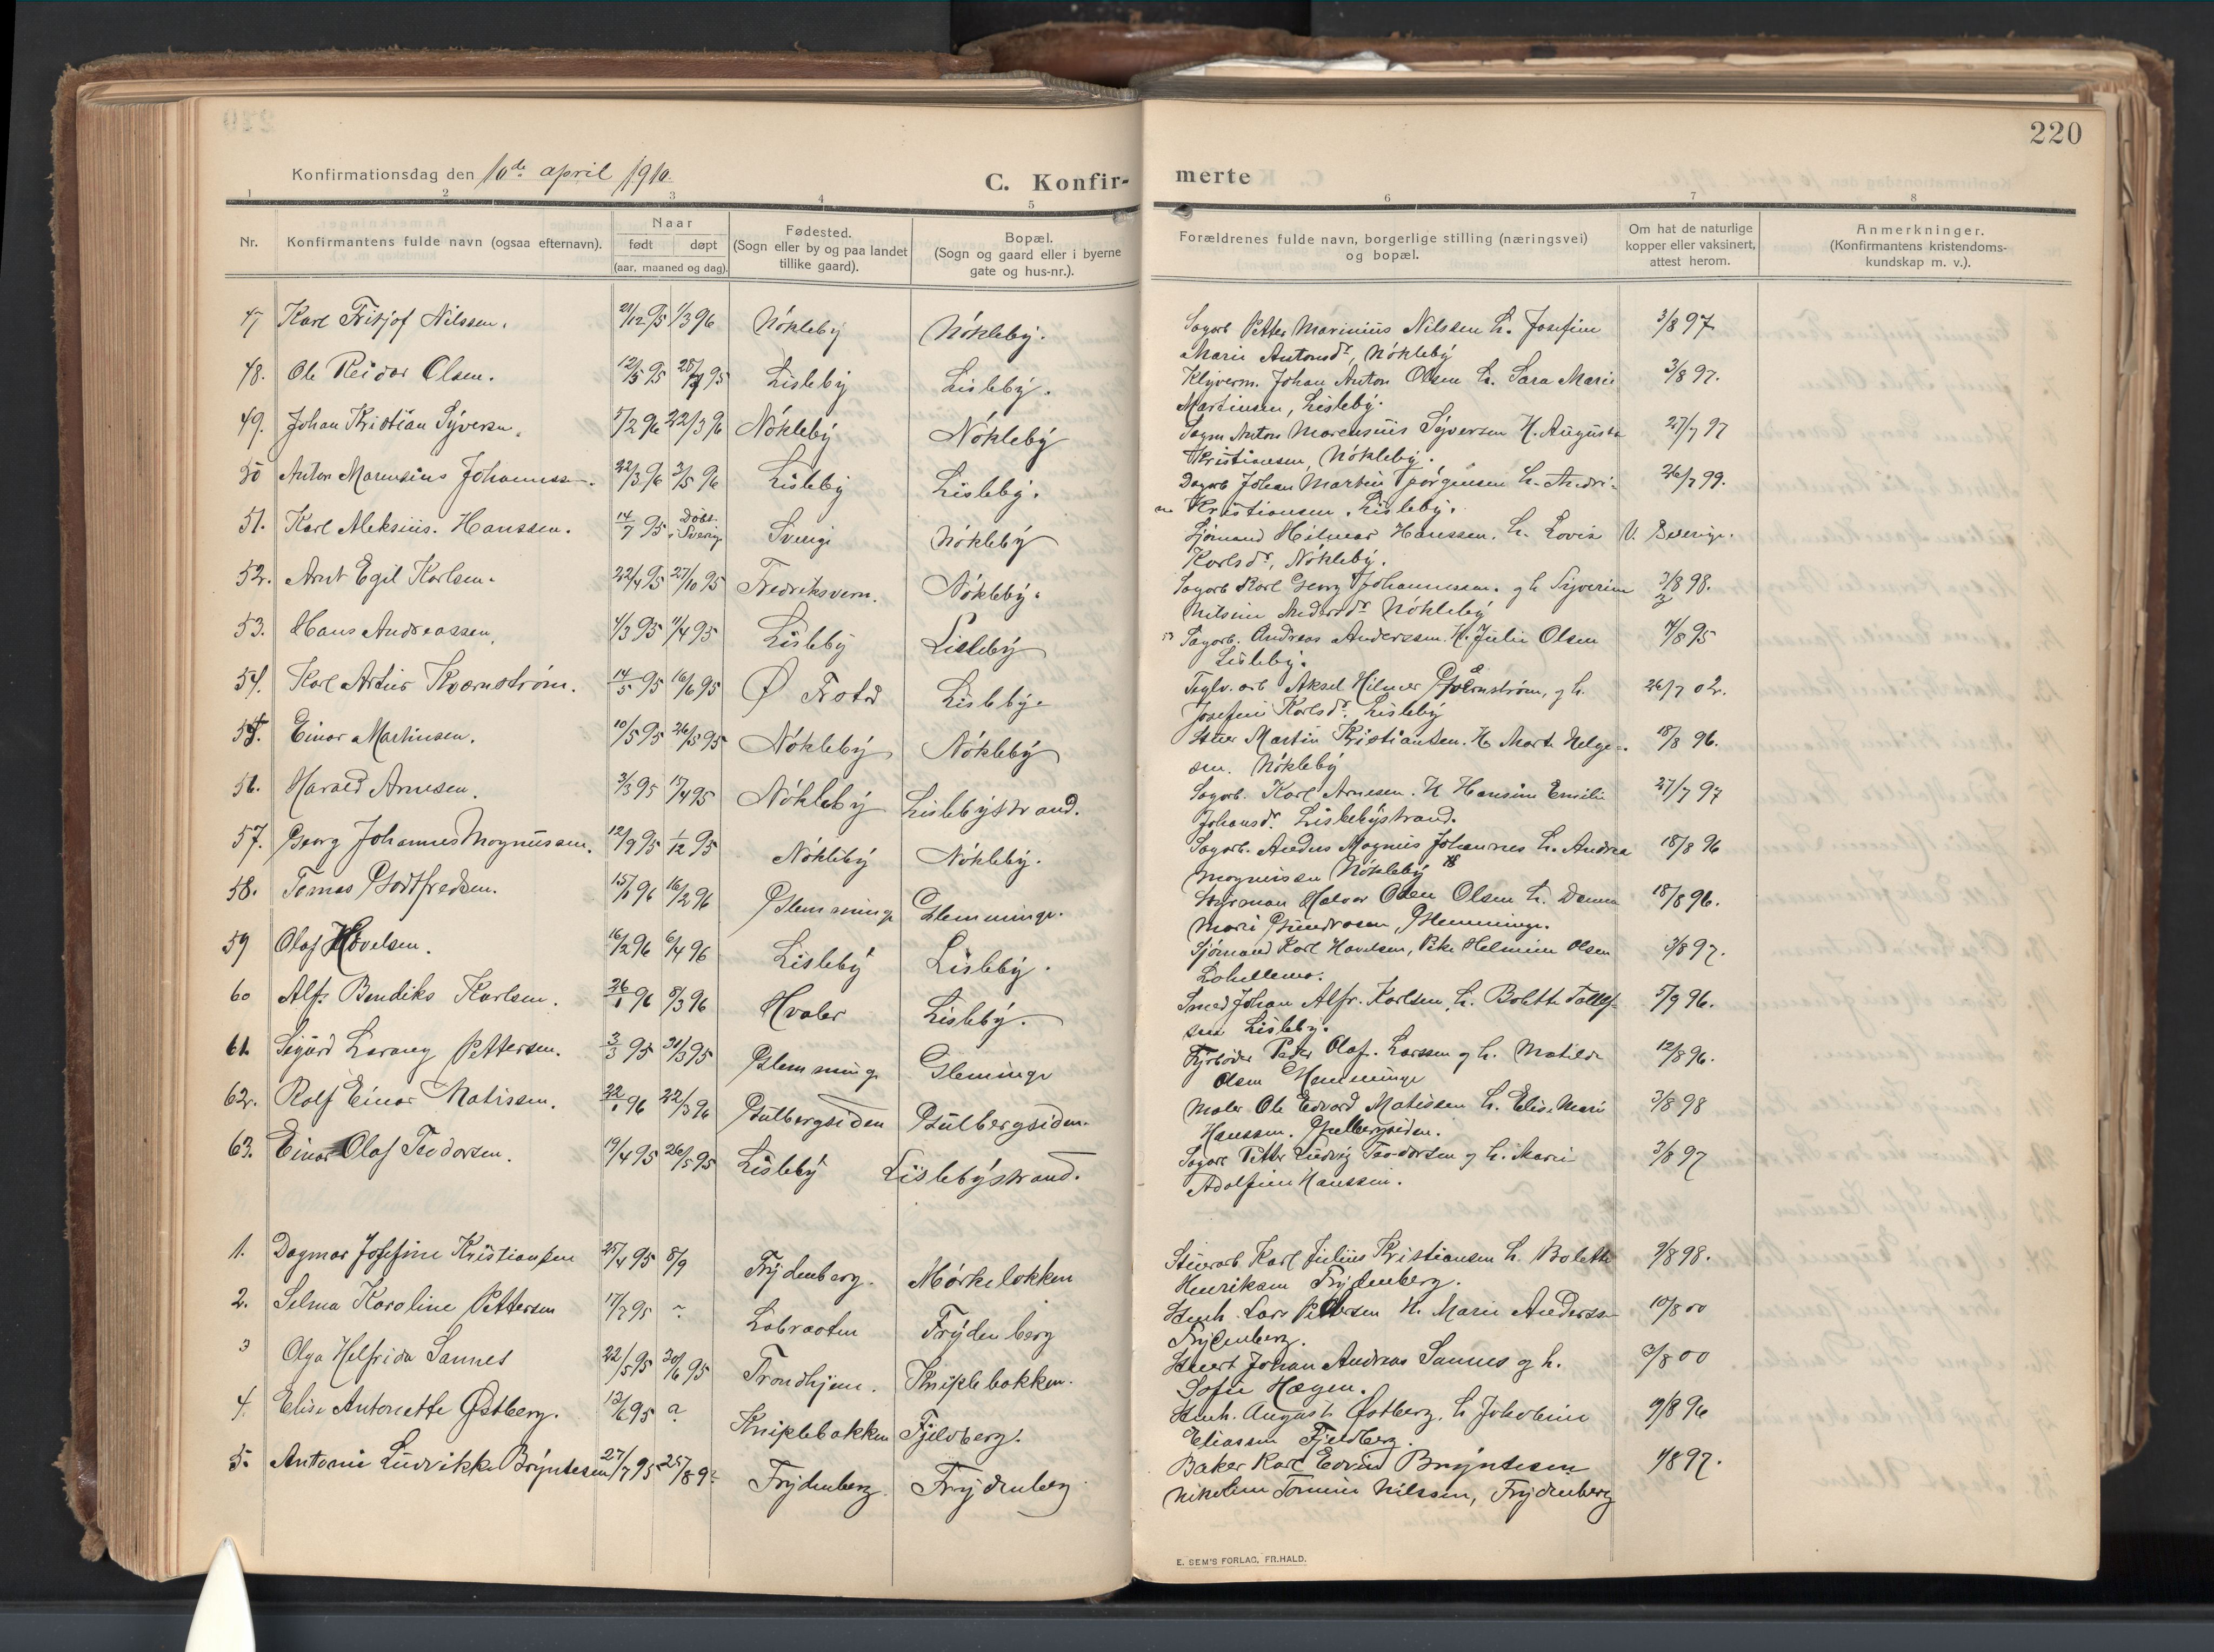 220
Konfirmationsdag den 10de april 1910
C. Konfir-
merte
1 2 3 4 5 6 7 8
Nr.
Konfirmantens fulde navn (ogsaa efternavn).
Naar
født døpt
(aar, maaned og dag).
Fødested.
(Sogn eller by og paa landet
tillike gaard).
Bopæl.
(Sogn og gaard eller i byerne
gate og hus-nr.).
Forældrenes fulde navn, borgerlige stilling (næringsvei)
og bopæl.
Om hat de naturlige
kopper eller vaksinert,
attest herom.
Anmerkninger.
(Konfirmantens kristendoms-
kundskap m. v.).
47 Karl Fritjof Nilssen. 21/12 95 1/3 96 Nökleby Nökleby. Sagarb Petter Marinius Nilssen h. Josefine 3/8 97
Marie Antonsdr, Nökleby
48. Ole Reidar Olsen. 12/5 95 28/7 95 Lisleby Lisleby. Klyverm. Johan Anton Olsen h. Sara Marie 3/8 97.
Martinsen, Lisleby.
49. Johan Kristian Syversen. 5/2 96 22/3 96 Nökleby Nökleby Sagm Anton Marensius Syversen H. Augusta 27/7 97
Kristiansen, Nökleby.
50 Anton Marensius Johanness. 22/3 96 3/5 96 Lisleby Lisleby. Dagarb Johan Martin Jörgensen h. Andri- 26/7 99.
ne Kristiansen. Lisleby.
51. Karl Aleksius. Hanssen. 14/7 95 Döbt. i Sverige Sverige Nökleby Sjömand Hilmar Hanssen. h. Lovis V. Sverige.
Karlsdr, Nökleby.
52. Arnt Egil Karlsen. 22/4 95 27/10 95 Fredriksvern. Nökleby. Sagarb Karl Georg Johannessen. og h Syverine 3/8 98.
Nilsine Andersdr Nökleby
53. Hans Andreassen. 4/3 95 11/4 95 Lisleby Lisleby Sagarb. Andreas Anderssen. H. Julie Olsen 14/8 95
Lisleby.
54. Karl Artur Kvernström. 14/5 95 16/6 95 Ø Fredr Lisleby. Teglv. arb Aksel Hilmer Kvernström, og h. 26/7 02.
Josefine Karlsdr. Lisleby
55. Einar Martinsen. 10/5 95 26/5 95 Nökleby Nökleby Stuer Martin Kristiansen. H Marte Helge- 18/8 96.
sen. Nökleby
56. Harald Arnesen. 3/3 95 15/4 95 Nökleby Lislebystrand. Sagarb. Karl Arnesen. H Hansine Emilie 27/7 97
Johansdr. Lislebystrand.
57. Georg Johannes Magnussen. 12/9 95 1/12 95 Nökleby Nökleby. Sagarb. Anders Magnus Johannes h. Andrea 18/8 96
Magnussen Nökleby
58. Tomas Godtfredsen. 15/1 96 16/2 96 Glemminge Glemminge. Styrman Halvor Olsen h. 18/8 96.
Marie Gundrosen, Glemminge.
59 Olaf Hövelsen. 16/2 96 6/4 96 Lisleby Lisleby. Sjömand Karl Havelsen, Pike Helmine Olsen 3/8 97.
60 Alfr. Bendiks Karlsen. 26/1 96 8/3 96 Hvaler Lisleby. Smed Johan Alfr. Karlsen, h. Bolette Tollef-
sen Lisleby. 5/9 96.
61. Sigurd Larang Pettersen. 3/3 95 31/3 95 Glemminge Gleminge Fyrböder Peder Olaf. Larssen og h. Matilde 12/8 96.
Olsen Glemminge
62. Rolf Einar Matissen. 22/1 96 22/3 96 Gulbergsiden Gulbergsiden. Maler Ole Edvard Matissen h. Elise Marie 3/8 98
Hanssen. Gulbergsiden.
63. Einar Olaf Teodorsen. 19/4 95 26/5 95 Lisleby Lislebystrand. Sagarb Petter Ludvig Teodorsen og h. Marie 3/8 97
Adolfine Hanssen.
1. Dagmar Josefine Kristiansen 25/4 95 8/9 Frydenberg. Mörkelokken Stuerarb Karl Julius Kristiansen h. Bolette 9/8 98.
Henriksen Frydenberg.
2. Selma Karoline Pettersen 17/7 95 ~ Labraaten Frydenberg Stenh. Lars Pettersen H. Marie Anderss- 10/8 00
Frydenberg.
3 Olga Helfrida Sannes 22/5 95 30/6 95 Trondhjem. Kniplebakken. Stuert Johan Andreas Sannes og h. 3/8 00
Sofie Hagen.
4. Elise Antonette Østberg. 13/6 95 ? Kniplebakken Fjeldberg. Stenh. August Østberg. h Jakobine 9/8 96
Eliassen Fjeldberg.
5. Antonie Ludvikke Bryntesen 27/7 95 25/8 95 Frydenberg Frydenberg Baker Karl Edvind Bryntesen 4/8 97.
Nikoline Tomine Nilssen, Frydenberg
E. SEM'S FORLAG, FR.HALD.